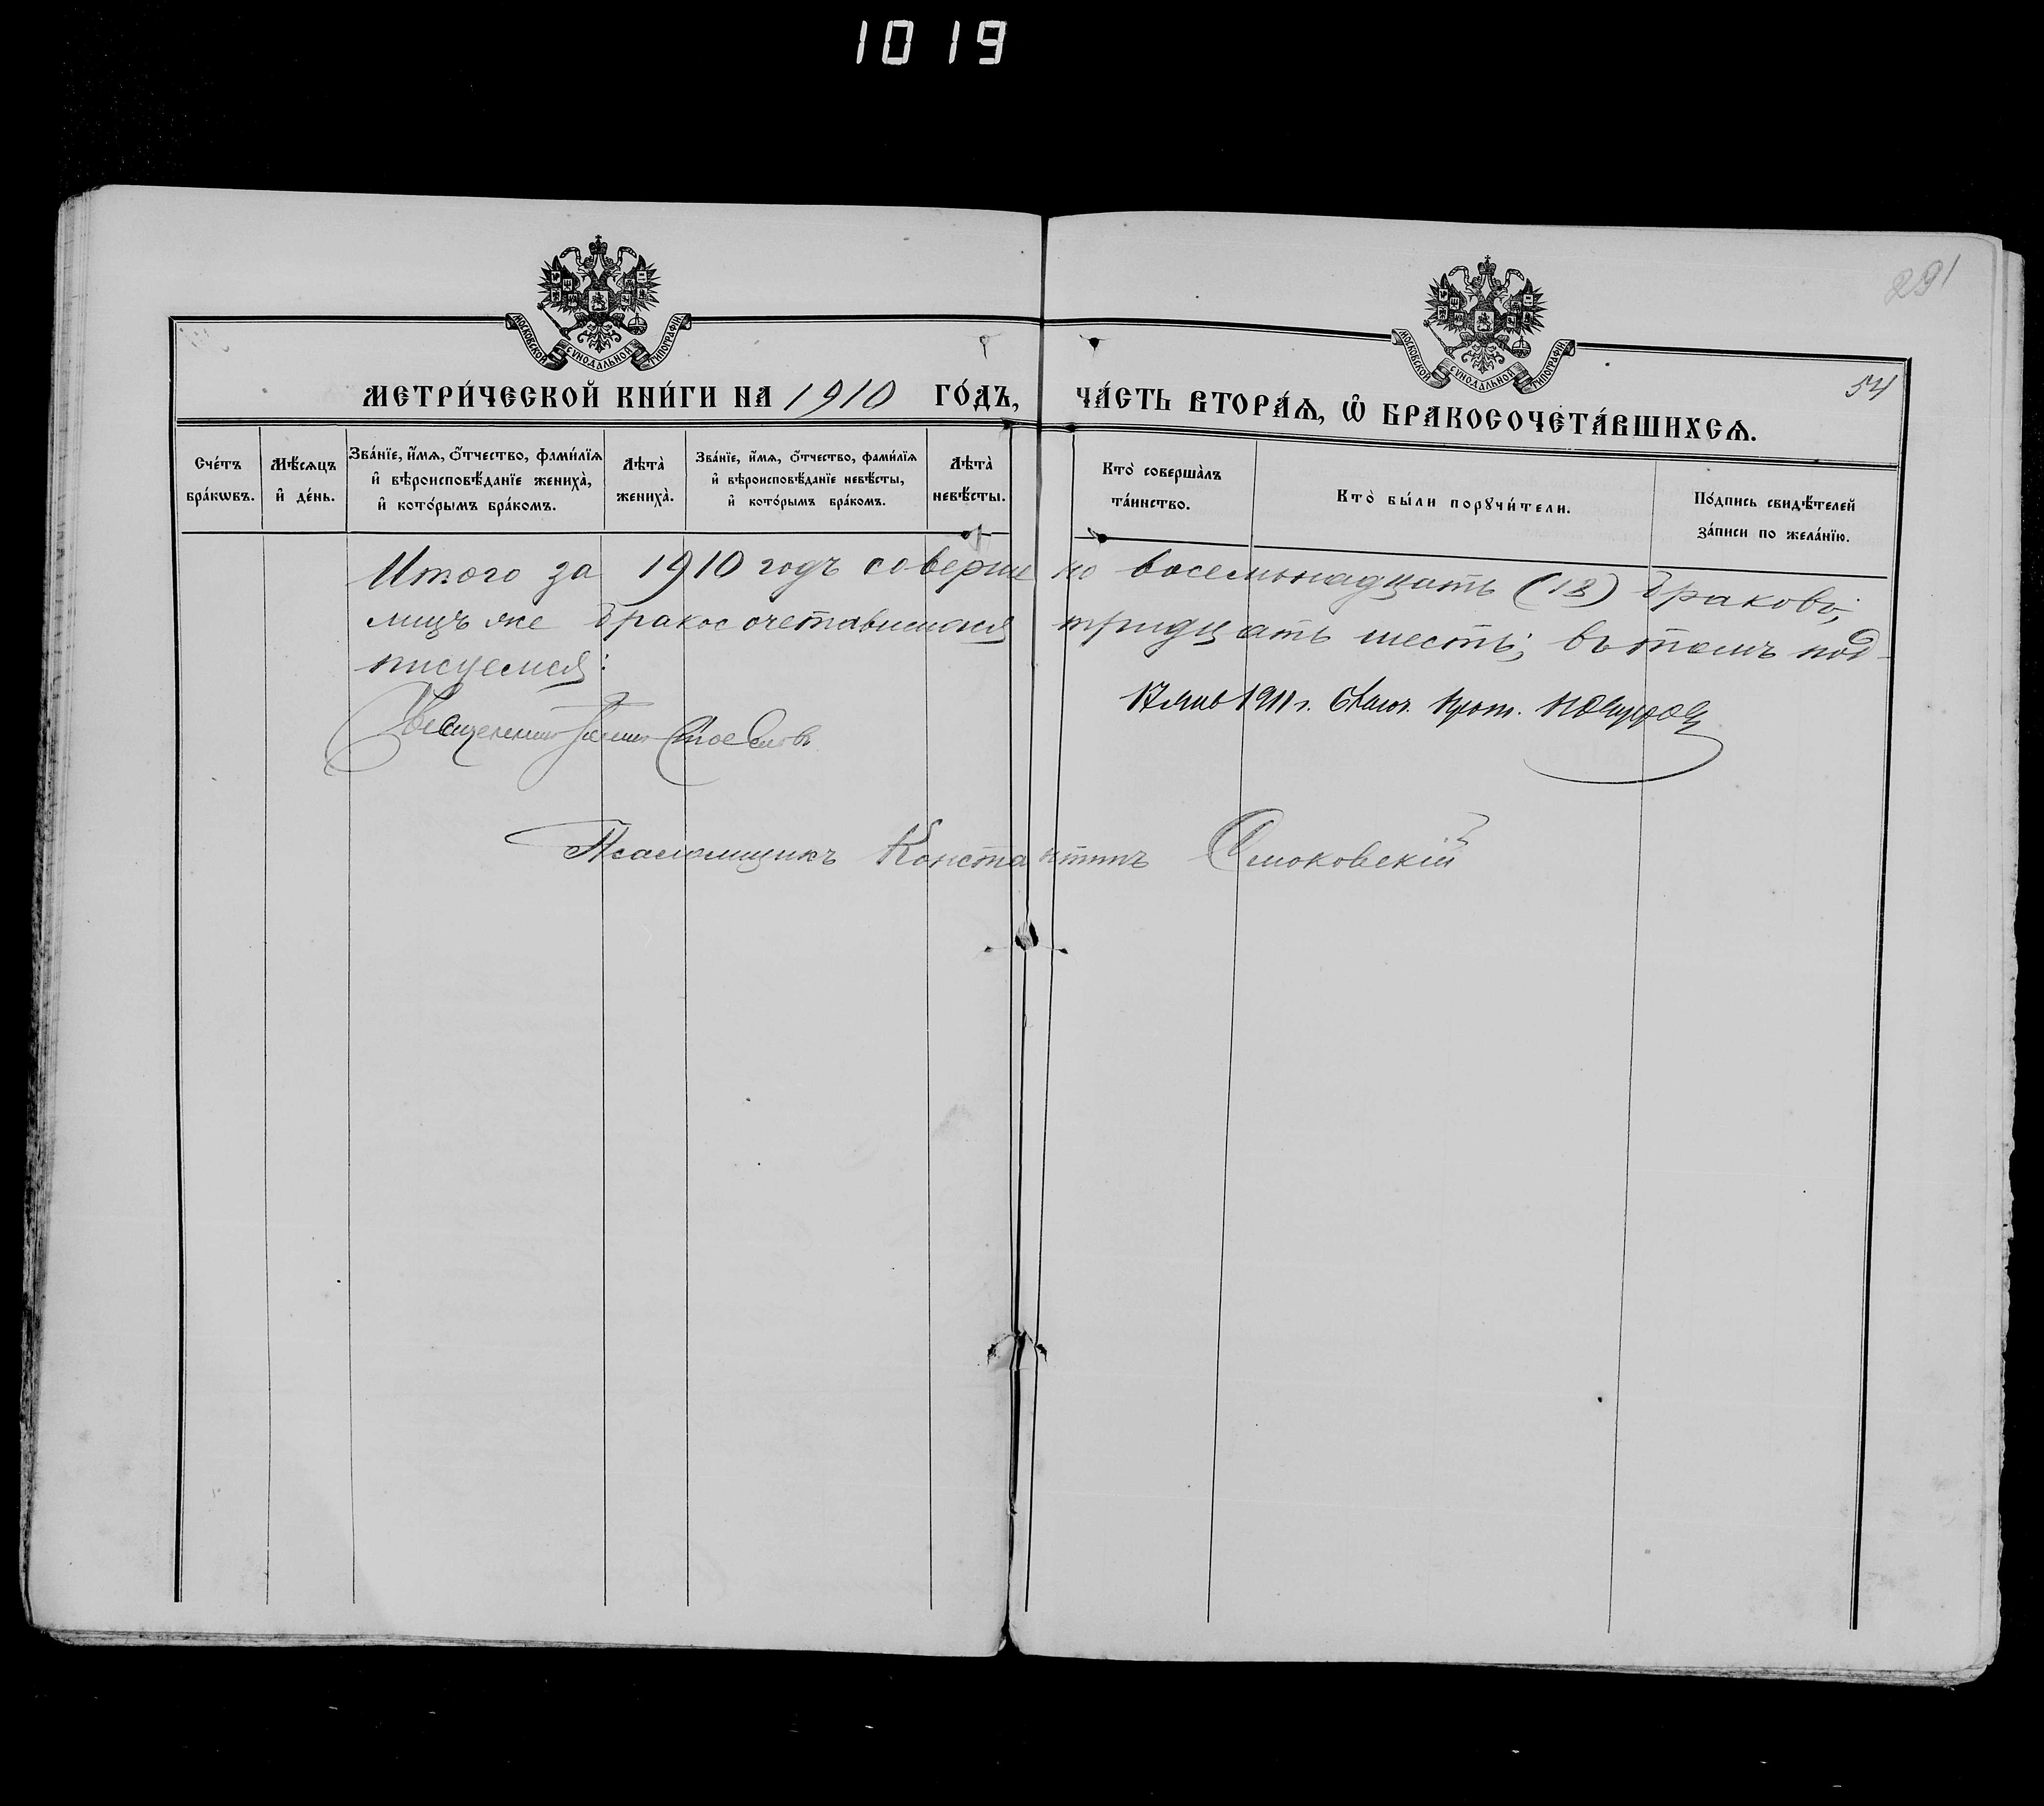 1019
291
МОСКОВСКОЙ СѴНОДАЛЬНОЙ ТИПОГРАФІИ
МОСКОВСКОЙ СѴНОДАЛЬНОЙ ТИПОГРАФІИ
54
МЕТРИ́ЧЕСКОЙ КНИ́ГИ НА 1910 ГО́ДЪ, ЧА́СТЬ ВТОРА́Ѧ, Ѽ БРАКОСОЧЕТА́ВШИХСѦ.
Сче́тъ
бра́кѡвъ.
Мѣ́сяцъ
и҆ де́нь.
Зва́нїе, и҆́мѧ, ѻ҆́тчество, фами́лїѧ
и҆ вѣроисповѣ́данїе жениха̀,
и҆ кото́рымъ бра́комъ.
Лѣта̀
жениха̀.
Зва́нїе, и҆́мѧ, ѻ҆́тчество, фами́лїѧ
и҆ вѣроисповѣ́данїе невѣ́сты,
и҆ кото́рымъ бра́комъ.
Лѣта̀
невѣ́сты.
Кто̀ соверша̀лъ
та́инство.
Кто̀ бы́ли порꙋчи́тели.
По́дпись свидѣ́телей
за́писи по жела́нїю.
Итого за 1910 годъ совершено восемьнадцать (18) браковъ;
лицъ же бракосочетавшихся тридцать шесть; въ томъ под-
писуемся:
Священникъ
17 янв 1911 г. Прот.
Псаломщикъ Константинъ Смоковскій